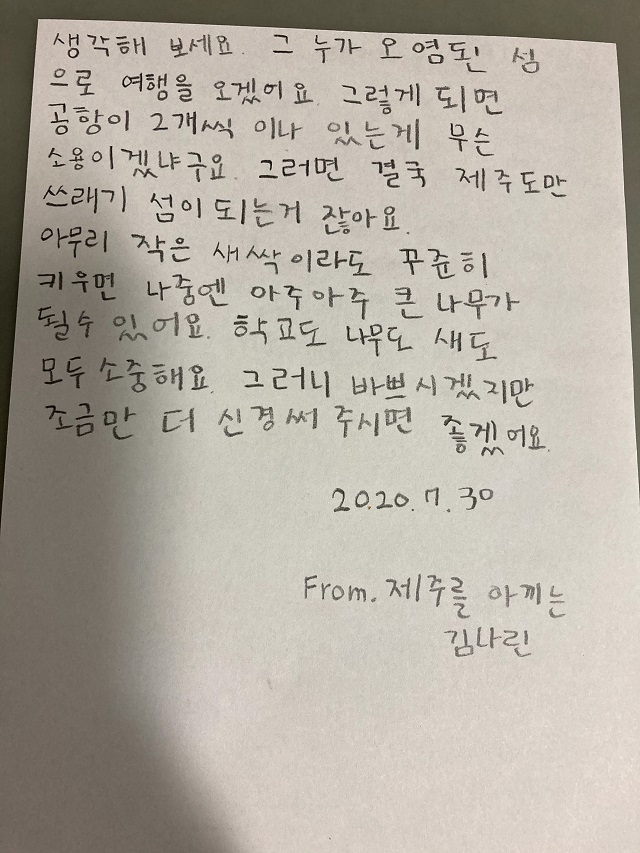 생각해 보세요. 그 누가 오염된 섬
으로 여행을 오겠어요. 그렇게 되면
공항이 2개씩 이나 있는게 무슨
소용이겠냐구요. 그러면 결국 제주도만
쓰래기 섬이 되는거 잖아요.
아무리 작은 새싹이라도 꾸준히
키우면 나중엔 아주아주 큰 나무가
될수 있어요. 학교도 나무도 새도
모두 소중해요. 그러니 바쁘시겠지만
조금만 더 신경써 주시면 좋겠어요.
2020.7.30
From. 제주를 아끼는
김나린